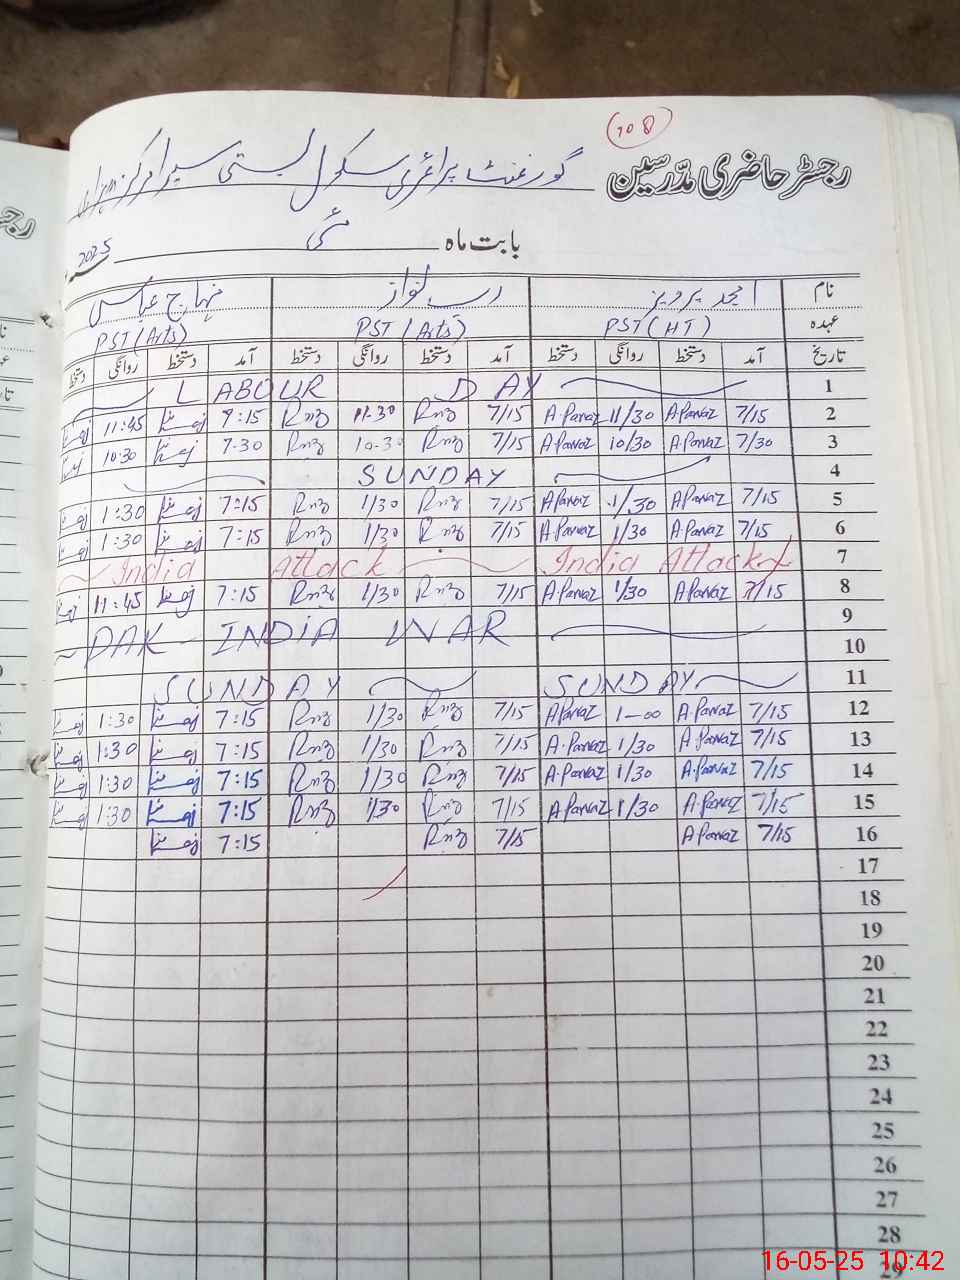 108
رجسٹر حاضری مدّرسین گورنمنٹ پرائمری سکول بستی
بابت ماہ مئی 2025
نام امجد پرویز رب نواز منہاج عباس
عہدہ PST (HT) PST (Arts) PST (Arts)
تاریخ آمد دستخط روانگی دستخط آمد دستخط روانگی دستخط آمد دستخط روانگی دستخط
1 LABOUR DAY
2 7/15 A.Parvaz 11/30 A.Parvaz 7/15 Rnz 11-30 Rnz 11:45
3 7/30 A.Parvaz 10/30 A.Parvaz 7/15 Rnz 10-30 Rnz 7-30 10:30
4 SUNDAY
5 7/15 A.Parvaz 1/30 A.Parvaz 7/15 Rnz 1/30 Rnz 7:15 1:30
6 7/15 A.Parvaz 1/30 A.Parvaz 7/15 Rnz 1/30 Rnz 7:15 1:30
7 India Attack India Attack
8 7/15 A.Parvaz 1/30 A.Parvaz 7/15 Rnz 1/30 Rnz 7:15 11:45
9 PAK INDIA WAR
10
11 SUNDAY SUNDAY
12 7/15 A.Parvaz 1-00 A.Parvaz 7/15 Rnz 1/30 Rnz 7:15 1:30
13 7/15 A.Parvaz 1/30 A.Parvaz 7/15 Rnz 1/30 Rnz 7:15 1:30
14 7/15 A.Parvaz 1/30 A.Parvaz 7/15 Rnz 1/30 Rnz 7:15 1:30
15 7/15 A.Parvaz 1/30 A.Parvaz 7/15 Rnz 1/30 Rnz 7:15 1:30
16 7/15 A.Parvaz 7/15 Rnz 7:15
17
18
19
20
21
22
23
24
25
26
27
28
29
16-05-25 10:42